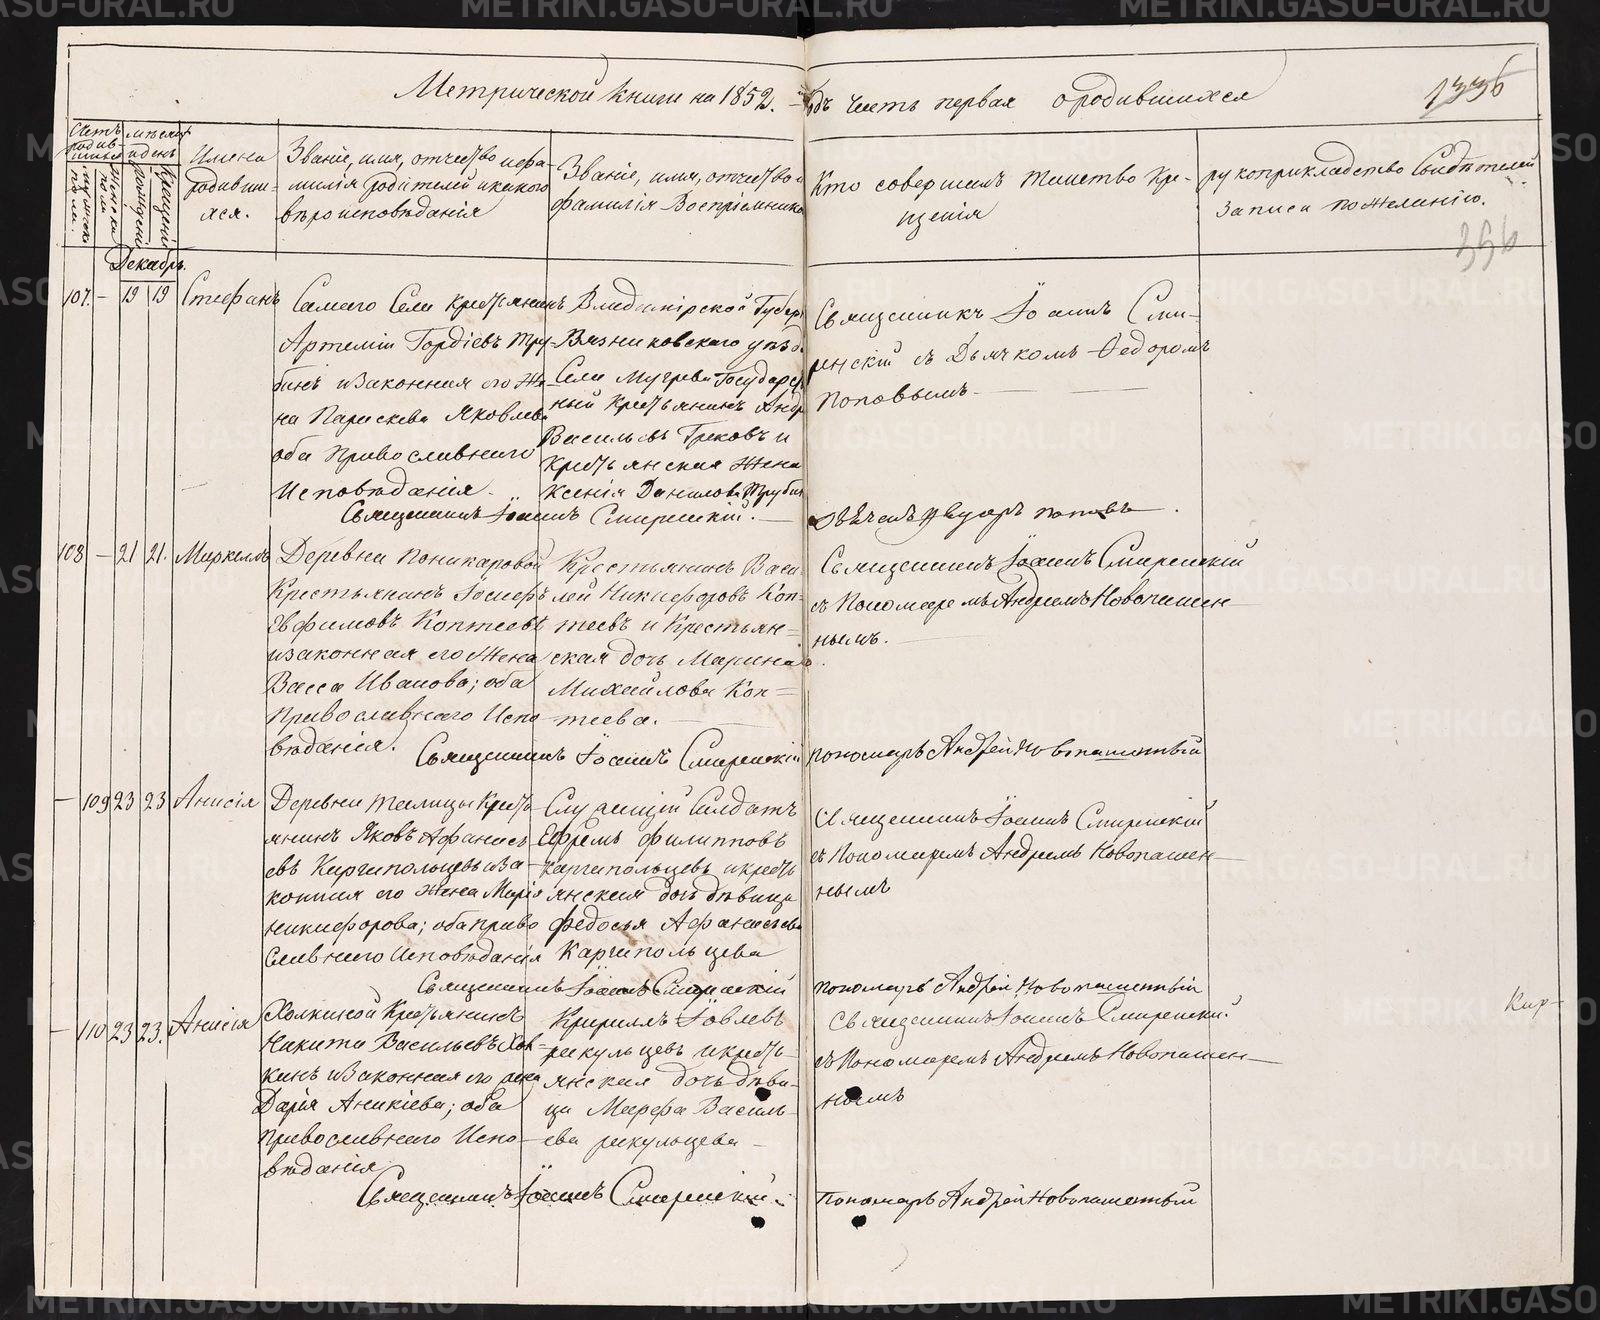 Метрической книги на 1852. годъ часть первая о родившихся
1336
356
Счетъ родив-шихся
мѣсяцъ и день
мужеска пола.
женска пола
рожденія
Крещенія
Имена
родивши-
хся.
Званіе, имя, отчество и фа-
милія родителей и какого
вѣроисповѣданія
Званіе, имя, отчество и
фамилія Воспріемника
Кто совершалъ таинство Кре-
щенія
рукоприкладство Свидѣтелей
записи по желанію.
Декабрь.
107. — 19 19 Стефанъ
Самаго Села крестьянинъ
Артемій Гордіевъ Тру-
бинъ и законная его же-
на Параскева Яковлева
оба Православнаго
Исповѣданія.
Владимірской Губер
Вязниковскаго уѣзд
Села Мугрева Государст
ный Крестьянинъ Андр
Васильевъ Грековъ и
Крестьянская жена
Ксенія Данилова Труби
Священникъ Іоаннъ Сми-
ренскій съ Дьячкомъ Ѳедоромъ
Поповымъ.
Священникъ Іоаннъ Смиренскій.
108 — 21 21. Маркеллъ
Деревни Поникаровой
Крестьянинъ Іосифъ
Евфимовъ Коптеевъ
и законная его жена
Васса Иванова; оба
Православнаго Испо-
вѣданія.
Крестьянинъ Васи-
лей Никифоровъ Коп-
теевъ и Крестьян-
ская дочь Марина
Михайлова Коп-
теева.
Священникъ Іоаннъ Смиренскій
съ Пономаремъ Андреемъ Новопашен-
нымъ.
Священникъ Іоаннъ Смиренскій
Пономарь Андрей Новопашенный
— 109 23 23 Анисія
Деревни Теплицы Кресть-
янинъ Яковъ Афанась-
евъ Каргапольцевъ и за-
конная его жена Марія
Никифорова; оба право
славнаго Исповѣданія
Служащій Солдатъ
Ефремъ Филипповъ
Каргапольцевъ и кресть
янская дочь дѣвица
Федосья Афанасьева
Каргапольцева
Священникъ Іоаннъ Смиренскій
съ Пономаремъ Андреемъ Новопашен-
нымъ
Священникъ Іоаннъ Смиренскій
Пономарь Андрей Новопашенный
— 110 23 23. Анисія
Холкиной Крестьянинъ
Никита Васильевъ Хол-
кинъ и законная его жена
Дарія Аникіева; оба
Православнаго Испо-
вѣданія
Кириллъ Іовлевъ
рекульцевъ и кресть-
янская дочь дѣви-
ца Марфа Василь-
ева рекульцева
Священникъ Іоаннъ Смиренскій.
съ Пономаремъ Андреемъ Новопашен-
нымъ
Священникъ Іоаннъ Смиренскій.
Пономарь Андрей Новопашенный
Кир-
METRIKI.GASU-URAL.RU